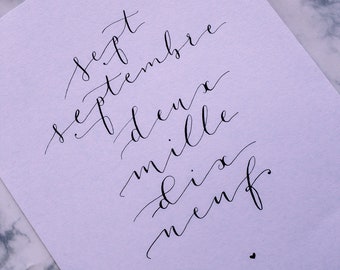 sept
septembre
deux
mille
dix
neuf.